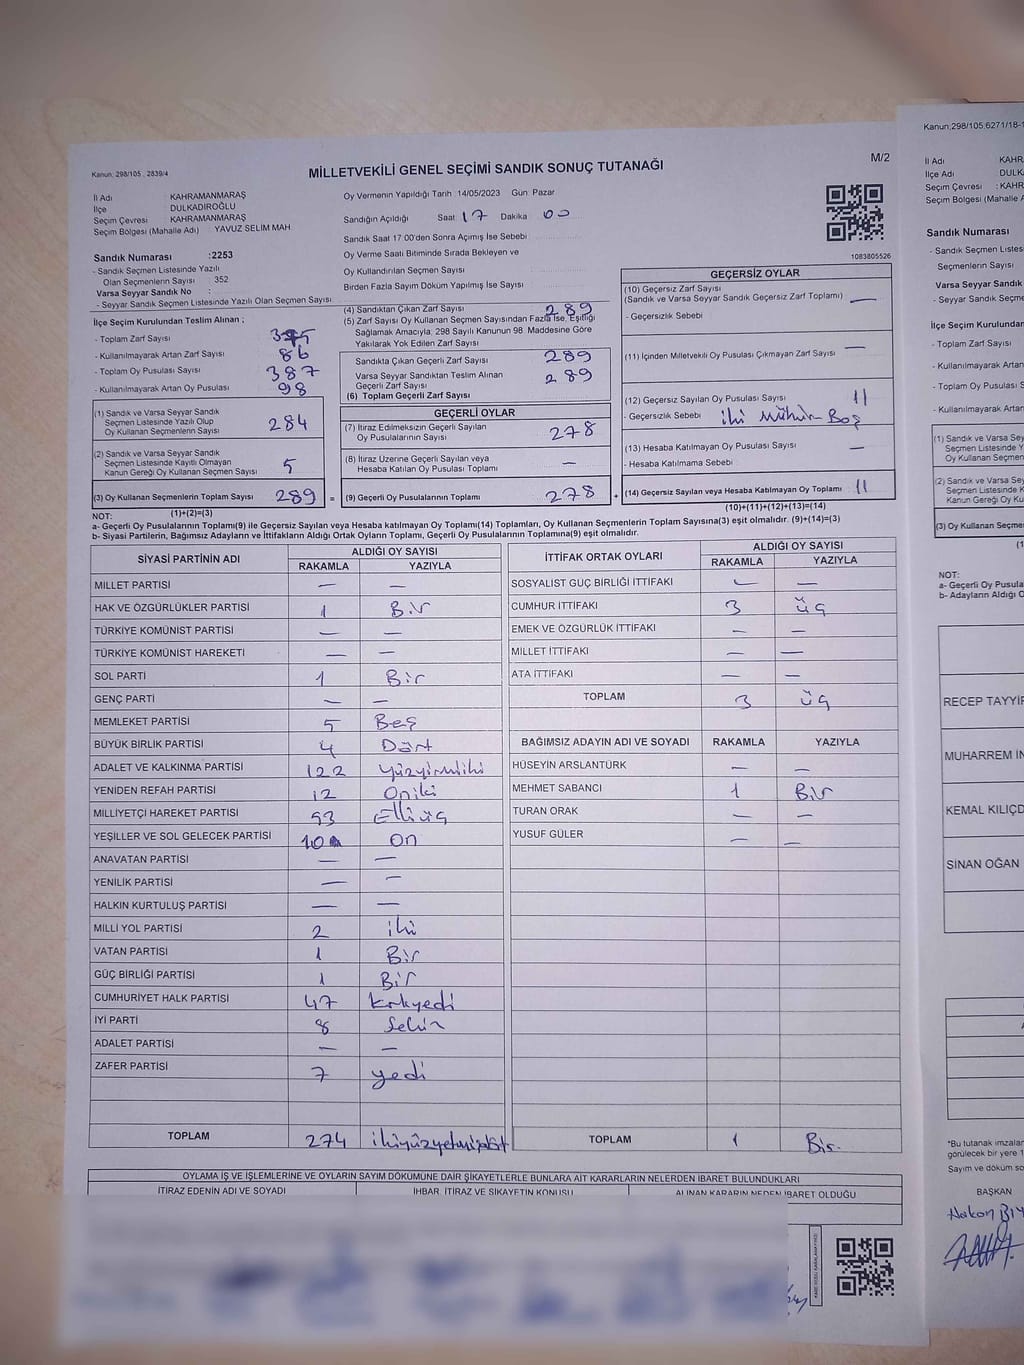 Kanun: 298/105, 2839/4
MİLLETVEKİLİ GENEL SEÇİMİ SANDIK SONUÇ TUTANAĞI
M/2
İl Adı : KAHRAMANMARAŞ
İlçe : DULKADİROĞLU
Seçim Çevresi : KAHRAMANMARAŞ
Seçim Bölgesi (Mahalle Adı) : YAVUZ SELİM MAH
Oy Vermenin Yapıldığı Tarih :14/05/2023 Gün: Pazar
Sandığın Açıldığı Saat 17 Dakika 00
Sandık Saat 17:00'den Sonra Açımış İse Sebebi
Oy Verme Saati Bitiminde Sırada Bekleyen ve
Oy Kullandırılan Seçmen Sayısı
Birden Fazla Sayım Döküm Yapılmış İse Sayısı
1083805526
Sandık Numarası :2253
- Sandık Seçmen Listesinde Yazılı
Olan Seçmenlerin Sayısı : 352
Varsa Seyyar Sandık No :
- Seyyar Sandık Seçmen Listesinde Yazılı Olan Seçmen Sayısı
İlçe Seçim Kurulundan Teslim Alınan ;
- Toplam Zarf Sayısı
- Kullanılmayarak Artan Zarf Sayısı 86
- Toplam Oy Pusulası Sayısı 387
- Kullanılmayarak Artan Oy Pusulası 98
(1) Sandık ve Varsa Seyyar Sandık
Seçmen Listesinde Yazılı Olup
Oy Kullanan Seçmenlerin Sayısı 284
(2) Sandık ve Varsa Seyyar Sandık
Seçmen Listesinde Kayıtlı Olmayan
Kanun Gereği Oy Kullanan Seçmen Sayısı 5
(3) Oy Kullanan Seçmenlerin Toplam Sayısı 289 =
(1)+(2)=(3)
(4) Sandıktan Çıkan Zarf Sayısı 289
(5) Zarf Sayısı Oy Kullanan Seçmen Sayısından Fazla İse, Eşitliği
Sağlamak Amacıyla; 298 Sayılı Kanunun 98. Maddesine Göre
Yakılarak Yok Edilen Zarf Sayısı
Sandıkta Çıkan Geçerli Zarf Sayısı 289
Varsa Seyyar Sandıktan Teslim Alınan
Geçerli Zarf Sayısı 289
(6) Toplam Geçerli Zarf Sayısı
GEÇERLİ OYLAR
(7) İtiraz Edilmeksizin Geçerli Sayılan
Oy Pusulalarının Sayısı 278
(8) İtiraz Üzerine Geçerli Sayılan veya
Hesaba Katılan Oy Pusulası Toplamı —
(9) Geçerli Oy Pusulalarının Toplamı 278 +
GEÇERSİZ OYLAR
(10) Geçersiz Zarf Sayısı
(Sandık ve Varsa Seyyar Sandık Geçersiz Zarf Toplamı) —
- Geçersizlik Sebebi
(11) İçinden Milletvekili Oy Pusulası Çıkmayan Zarf Sayısı —
(12) Geçersiz Sayılan Oy Pusulası Sayısı 11
- Geçersizlik Sebebi iki Mühür- Boş
(13) Hesaba Katılmayan Oy Pusulası Sayısı —
- Hesaba Katılmama Sebebi
(14) Geçersiz Sayılan veya Hesaba Katılmayan Oy Toplamı 11
(10)+(11)+(12)+(13)=(14)
NOT:
a- Geçerli Oy Pusulalarının Toplamı(9) ile Geçersiz Sayılan veya Hesaba katılmayan Oy Toplamı(14) Toplamları, Oy Kullanan Seçmenlerin Toplam Sayısına(3) eşit olmalıdır. (9)+(14)=(3)
b- Siyasi Partilerin, Bağımsız Adayların ve İttifakların Aldığı Ortak Oyların Toplamı, Geçerli Oy Pusulalarının Toplamına(9) eşit olmalıdır.
SİYASİ PARTİNİN ADI
ALDIĞI OY SAYISI
RAKAMLA YAZIYLA
MİLLET PARTİSİ — —
HAK VE ÖZGÜRLÜKLER PARTİSİ 1 Bir
TÜRKİYE KOMÜNİST PARTİSİ — —
TÜRKİYE KOMÜNİST HAREKETİ — —
SOL PARTİ 1 Bir
GENÇ PARTİ — —
MEMLEKET PARTİSİ 5 Beş
BÜYÜK BİRLİK PARTİSİ 4 Dört
ADALET VE KALKINMA PARTİSİ 122 yüzyirmiiki
YENİDEN REFAH PARTİSİ 12 Oniki
MİLLİYETÇİ HAREKET PARTİSİ 53 Elliüç
YEŞİLLER VE SOL GELECEK PARTİSİ 10 On
ANAVATAN PARTİSİ — —
YENİLİK PARTİSİ — —
HALKIN KURTULUŞ PARTİSİ — —
MİLLİ YOL PARTİSİ 2 iki
VATAN PARTİSİ 1 Bir
GÜÇ BİRLİĞİ PARTİSİ 1 Bir
CUMHURİYET HALK PARTİSİ 47 Kırkyedi
İYİ PARTİ 8 Sekiz
ADALET PARTİSİ — —
ZAFER PARTİSİ 7 yedi
TOPLAM 274 ikiyüzyetmişdört
İTTİFAK ORTAK OYLARI
ALDIĞI OY SAYISI
RAKAMLA YAZIYLA
SOSYALİST GÜÇ BİRLİĞİ İTTİFAKI — —
CUMHUR İTTİFAKI 3 üç
EMEK VE ÖZGÜRLÜK İTTİFAKI — —
MİLLET İTTİFAKI — —
ATA İTTİFAKI — —
TOPLAM 3 üç
BAĞIMSIZ ADAYIN ADI VE SOYADI RAKAMLA YAZIYLA
HÜSEYİN ARSLANTÜRK — —
MEHMET SABANCI 1 Bir
TURAN ORAK — —
YUSUF GÜLER — —
TOPLAM 1 Bir
OYLAMA İŞ VE İŞLEMLERİNE VE OYLARIN SAYIM DÖKÜMÜNE DAİR ŞİKAYETLERLE BUNLARA AİT KARARLARIN NELERDEN İBARET BULUNDUKLARI
İTİRAZ EDENİN ADI VE SOYADI
İHBAR, İTİRAZ VE ŞİKAYETİN KONUSU
ALINAN KARARIN NEDEN İBARET OLDUĞU
Kanun:298/105;6271/18-1
İl Adı : KAHR
İlçe : DULK
Seçim Çevresi : KAHR
Seçim Bölgesi (Mahalle A
Sandık Numarası
- Sandık Seçmen Listes
Seçmenlerin Sayısı
Varsa Seyyar Sandık
- Seyyar Sandık Seçme
İlçe Seçim Kurulundan
- Toplam Zarf Sayısı
- Kullanılmayarak Artan
- Toplam Oy Pusulası S
- Kullanılmayarak Artan
(1) Sandık ve Varsa Sey
Seçmen Listesinde Y
Oy Kullanan Seçmen
(2) Sandık ve Varsa Sey
Seçmen Listesinde K
Kanun Gereği Oy Ku
(3) Oy Kullanan Seçme
NOT:
a- Geçerli Oy Pusula
b- Adayların Aldığı O
RECEP TAYYİ
MUHARREM İN
KEMAL KILIÇD
SİNAN OĞAN
*Bu tutanak imzalar
görülecek bir yere 1
Sayım ve döküm so
BAŞKAN